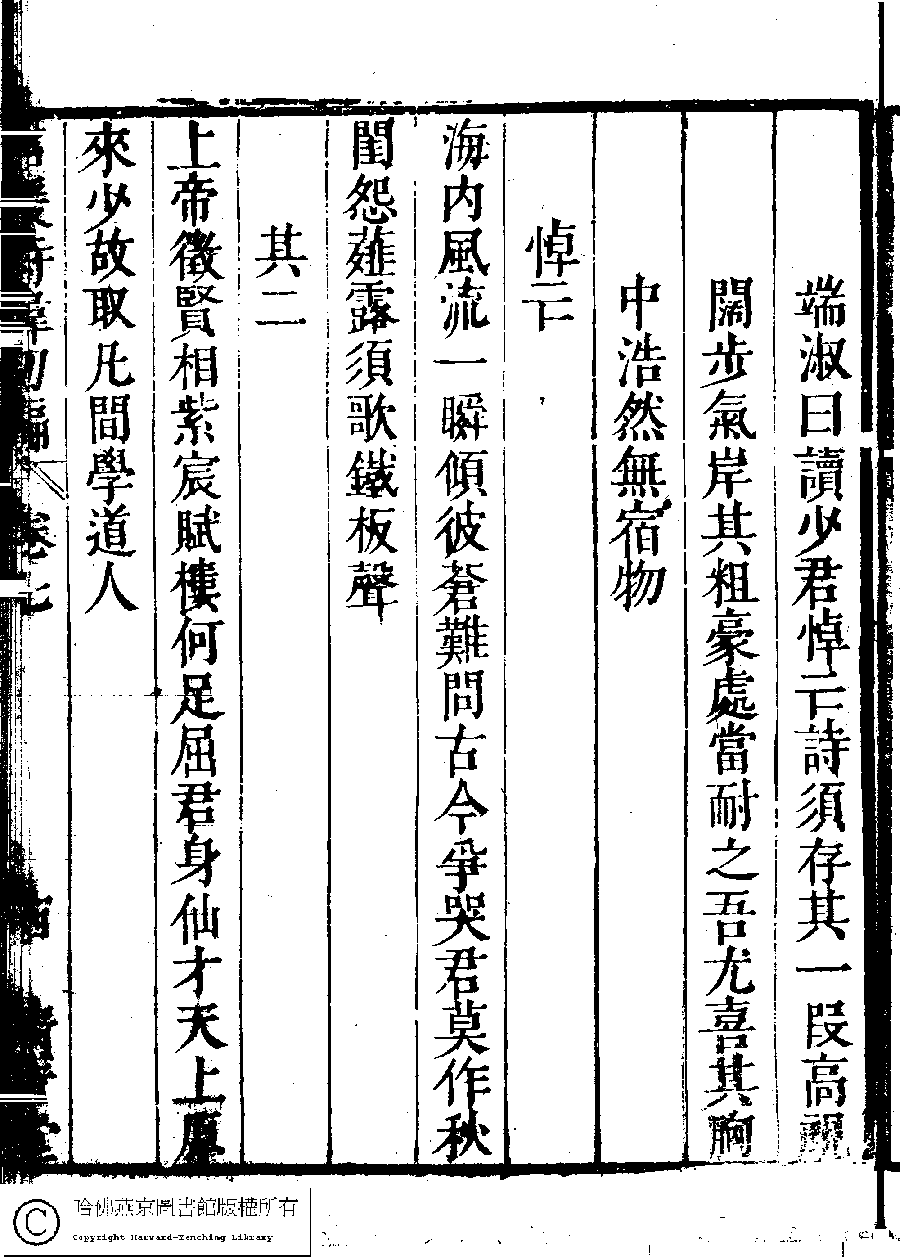 端淑曰讀少君悼亡詩須存其一段高視
闊步氣岸其粗豪處當耐之吾尤喜其胸
中浩然無宿物
悼亡
海内風流一瞬傾彼蒼難問古今爭哭君莫作秋
閨怨薤露須歌鐵板聲
其二
上帝徵賢相紫宸賦樓何足屈君身仙才天上原
來少故取凡間學道人
初編 卷七
哈佛燕京圖書館版權所有
Copyright Harvard-Yenching Library